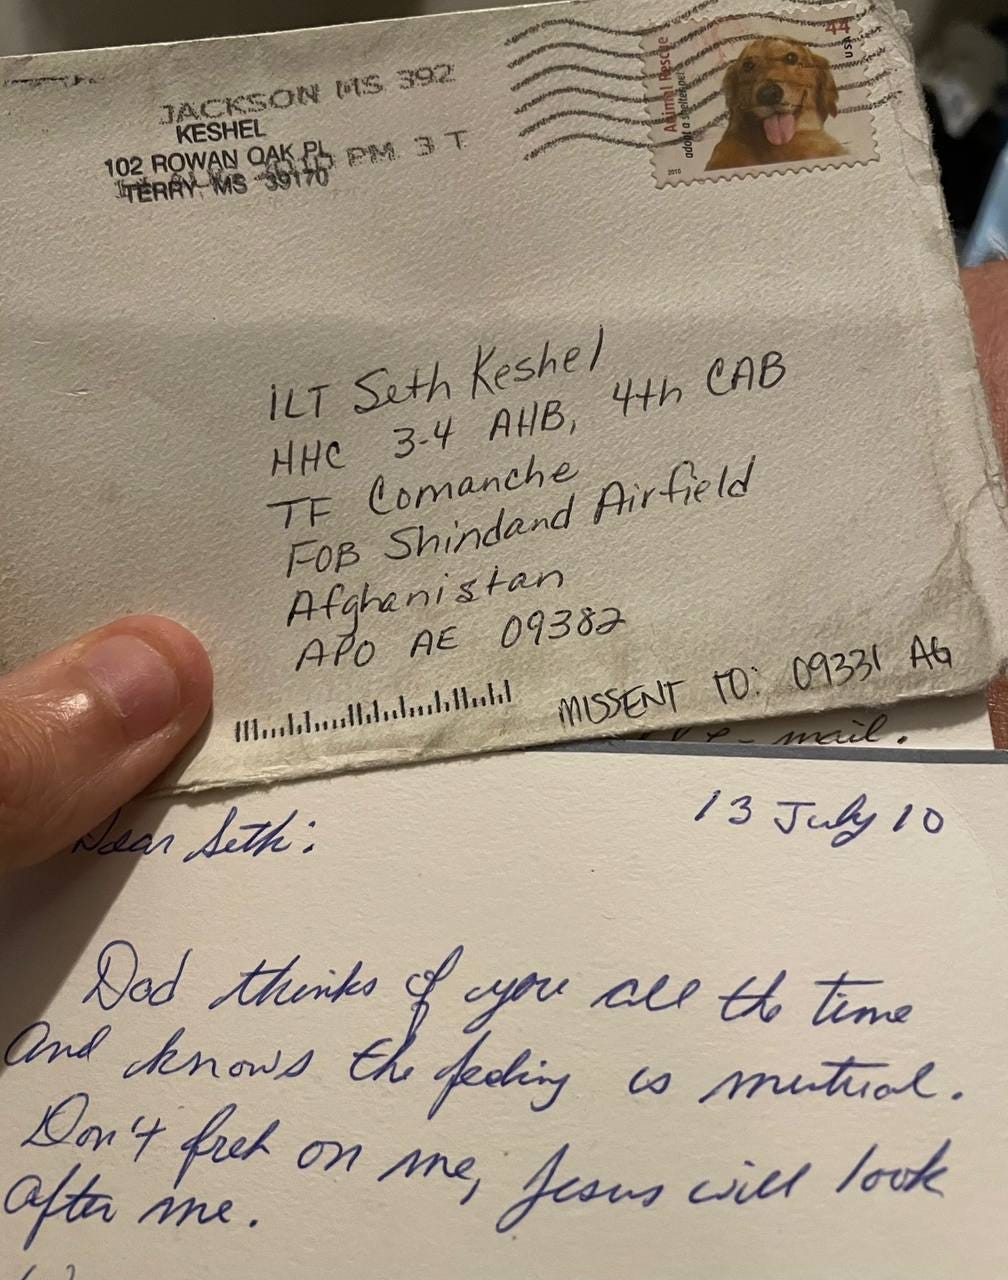 JACKSON MS 392
KESHEL
102 ROWAN OAK PL
PM 3 T
TERRY MS 39170
Animal Rescue
adopt a shelter pet
44
USA
2010
1LT Seth Keshel
HHC 3-4 AHB, 4th CAB
TF Comanche
FOB Shindand Airfield
Afghanistan
APO AE 09382
MISSENT TO: 09331 AG
e-mail.
13 July 10
Dear Seth:
Dad thinks of you all the time
And knows the feeling is mutual.
Don't fret on me, Jesus will look
after me.